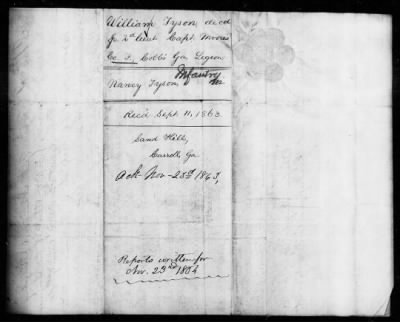 William Tyson decd
Jr 2d Lieut Capt. Moore's
Co. F. Cobb's Ga Legion
Infantry
Nancy Tyson
Recd Sept 11, 1863
Sand Hill,
Carroll, Ga
Ack Nov - 25th 1863,
Reports written for
Nov. 23rd 1864